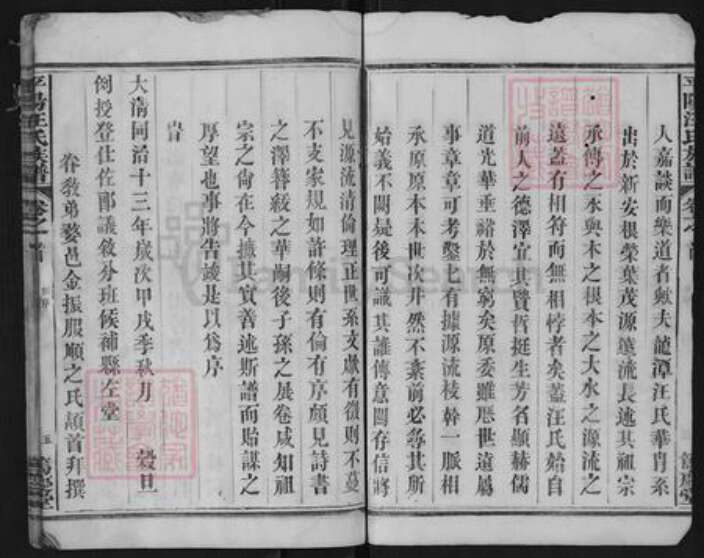 人嘉談而樂道者歟夫龍潭汪氏華胄系
出於新安根榮葉茂源遠流長述其祖宗
承傳之永與木之根本之大水之源流之
遠若有相符而無相悖者矣蓋汪氏始自
前人之德澤宜其賢哲挺生芳名顯赫儒
道光華垂裕於無窮矣原委雖歷世遠屬
事章章可考鑿上有據源流枝幹一脈相
承原原本本世次井然不紊前必尋其所
始義不闕是後可識其誰傳意闕存信將
見源流清倫理正世系文獻有徵則不蔓
不支家規如許條則有倫有序頗見詩書
之澤簪紱之華嗣後子孫之展卷咸知祖
宗之尚在今摭其實善述斯譜而貽謀之
厚望也事將告竣是以為序
旹
大清同治十三年歲次甲戌季秋月 穀旦
例授登仕佐郎議敘分班候補縣左堂
眷教弟婺邑金振服順之氏頓首拜撰
平陽汪氏族譜
卷之首
五
平陽汪氏族譜
卷之首
FamilySearch